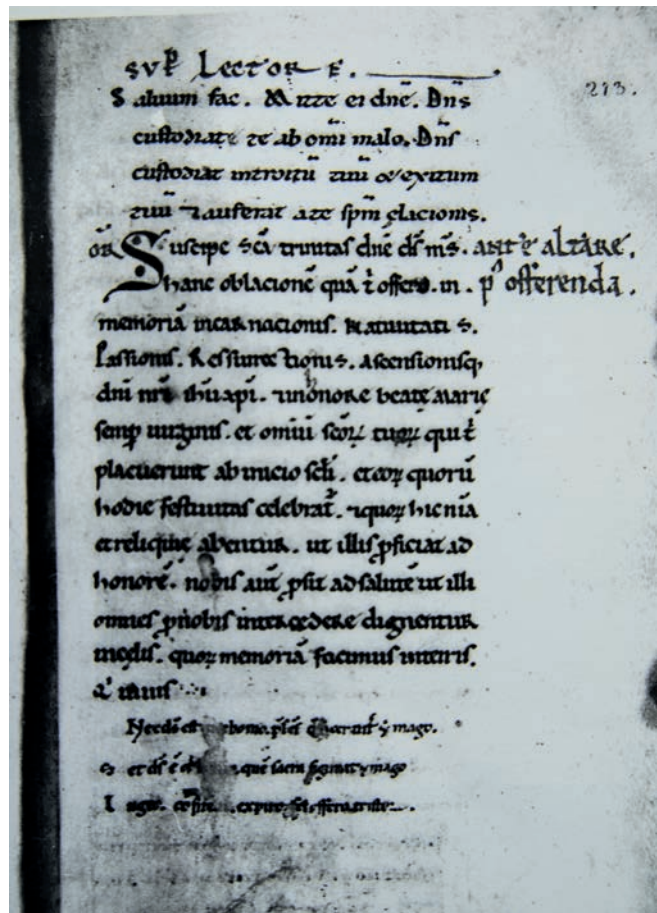 SVP̄ LECTORĒ.
213.
Saluum fac. Mitte ei dn̄e. Dn̄s
custodiat te ab om̄i malo. Dn̄s
custodiat introitū tuū & exitum
tuū ⁊ auferat a te sp̄m elacionis.
OR̄ Suscipe sc̄a trinitas dn̄e ds̄ ms̄. ANTE ALTARE.
hanc oblacionē quā t̄ offero. in. p᷒ offerenda.
memoriā incarnacionis. Natiuitatis.
Passionis. Resurrectionis. ascensionisq;
dn̄i nr̄i ih̄u xp̄i. ⁊ in honore beatę Marię
semp̄ uirginis. et omiū sc̄oꝝ tuoꝝ qui t̄
placuerunt ab inicio sc̄li. et eoꝝ quorū
hodie festiuitas celebrat̄. ⁊ quoꝝ hic n̄ia
et reliquię abentur. ut illis ꝓficiat ad
honorē. nobis aut̄ ꝓsit ad salutē ut illi
omnes ꝓ nobis intercedere dignentur
in cęlis. quoꝝ memoriā facimus in terris.
Nec
et ds̄ ē quē sacra ymago